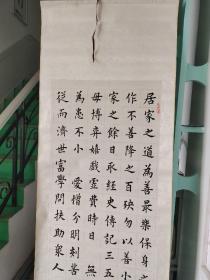 居家之道為善最樂保身
作不善降之百殃勿以善小
家之餘日經史傳記三五
毋博弈嬉戲虛費時日 無
為患不小 愛憎分明刻苦
從而濟世富學問扶助衆人